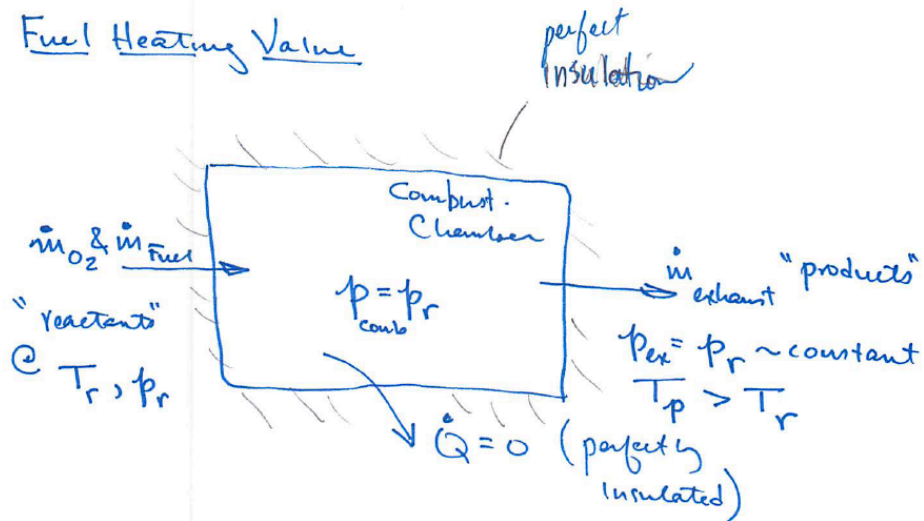 Fuel Heating Value
perfect
insulation
Combust.
Chamber
ṁ_O2 & ṁ_Fuel
"reactants"
@ T_r, p_r
p_comb = p_r
ṁ_exhaust "products"
p_ex = p_r ~ constant
T_p > T_r
Q̇ = 0 (perfectly
insulated)